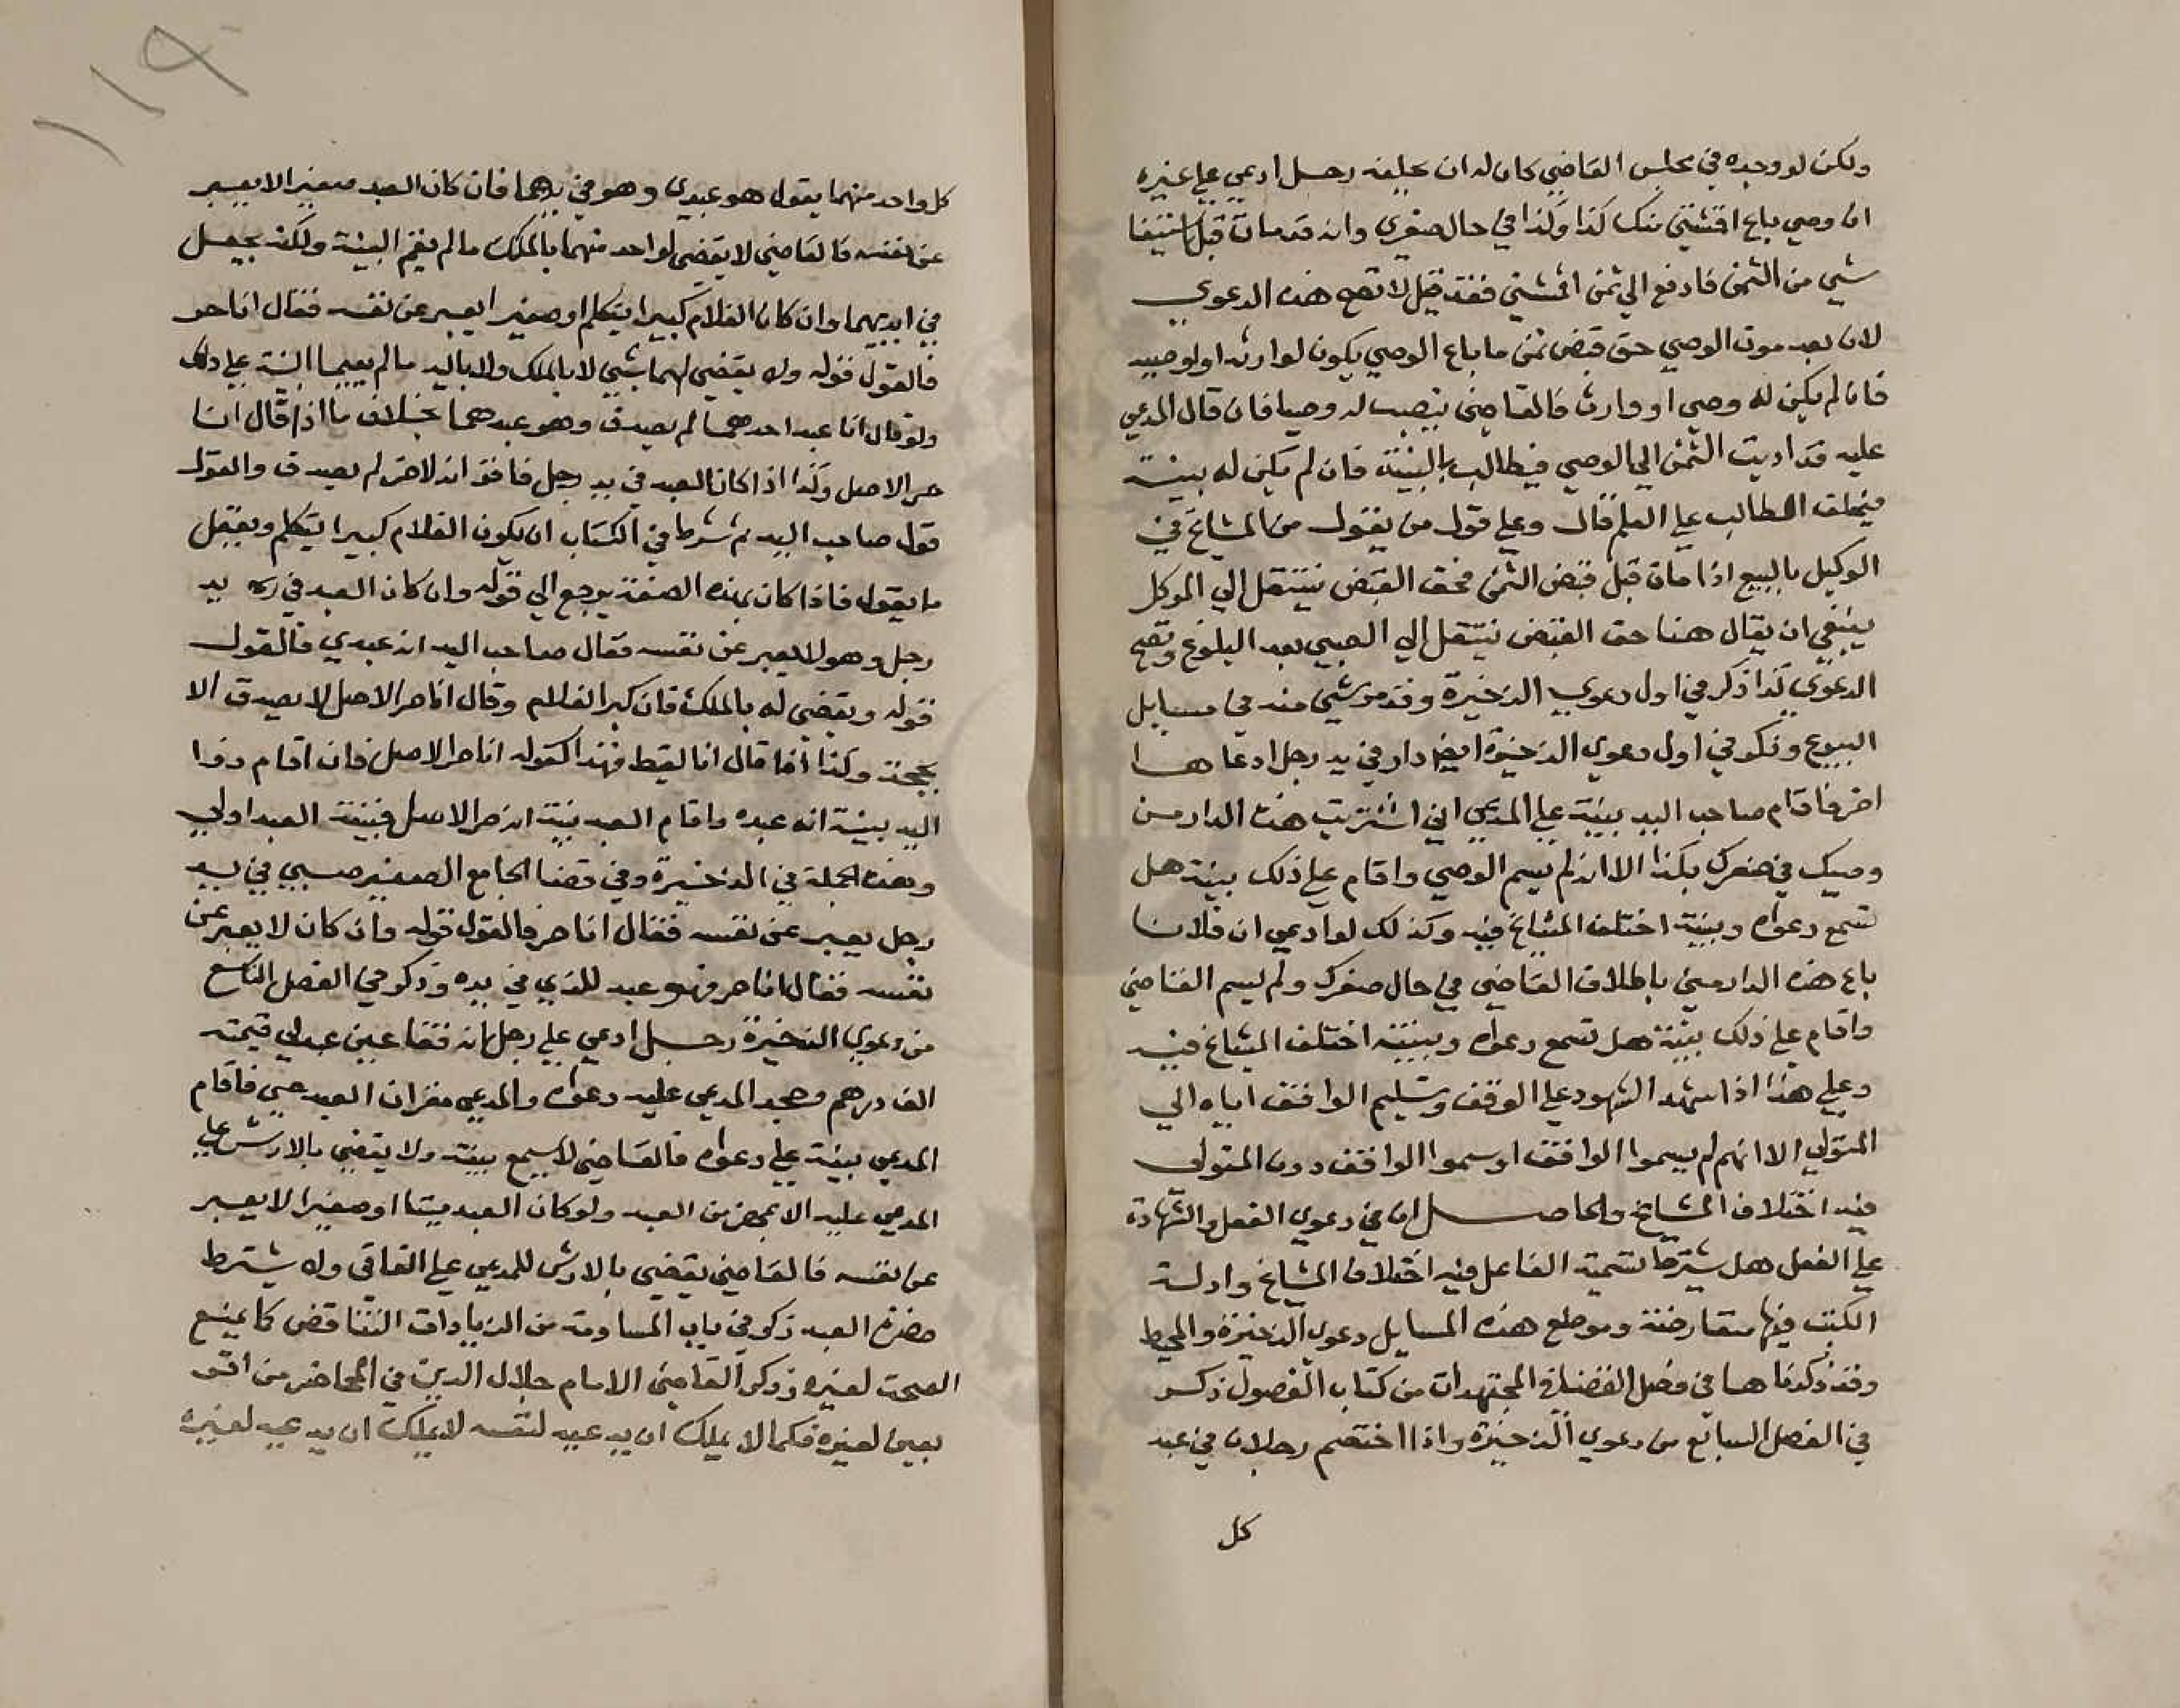 ولكن لو وجده في مجلس القاضي كان له ان يحلفه رجل ادعي علي غيره
ان وصي باع اقمشتي منك كذا وكذا في حال صغري وانه قد مات قبل استيفا
شي من الثمن فادفع الي ثمن اقمشتي فقد قيل لا تصح هذه الدعوي
لان بعد موت الوصي حق قبض ثمن ما باع الوصي يكون لوارثه او لوصيه
فان لم يكن له وصي او وارث فالقاضي ينصب له وصيا فان قال المدعي
عليه قد اديت الثمن الي الوصي فيطالب بالبينة فان لم يكن له بينة
فيحلف الطالب علي العلم قال وعلي قول من يقول من المشايخ في
الوكيل بالبيع اذا مات قبل قبض الثمن فحق القبض ينتقل الي الموكل
ينبغي ان يقال هنا حق القبض ينتقل الي الصبي بعد البلوغ وتصح
الدعوي كذا ذكر في اول دعوي الذخيرة وقد مر شي منه في مسايل
البيوع وذكر في اول دعوي الذخيرة ايضا دار في يد رجل ادعاها
اخر فاقام صاحب اليد بينة علي المدعي اني اشتريت هذه الدار من
وصيك في صغرك بكذا الا انه لم يسم الوصي واقام علي ذلك بينة هل
تسمع دعواه وبينته اختلف المشايخ فيه وكذلك لو ادعي ان فلانا
باع هذه الدار مني باطلاق القاضي في حال صغرك ولم يسم القاضي
واقام علي ذلك بينة هل تسمع دعواه وبينته اختلف المشايخ فيه
وعلي هذا اذا شهد الشهود علي الوقف وتسليم الواقف اياه الي
المتولي الا انهم لم يسموا الواقف او سموا الواقف دون المتولي
فيه اختلاف المشايخ والحاصل ان في دعوي الفعل والشهادة
علي الفعل هل يشترط تسمية الفاعل فيه اختلاف المشايخ وادلة
الكتب فيها متعارضة وموضع هذه المسايل دعوي الذخيرة والمحيط
وقد ذكرناها في فصل القضا في المجتهدات من كتاب الفصول ذكر
في الفصل السابع من دعوي الذخيرة واذا اختصم رجلان في عبد
كل
١١٩
كل واحد منهما يقول هو عبدي وهو في يدهما فان كان العبد صغيرا لا يعبر
عن نفسه فالقاضي لا يقضي لواحد منهما بالملك ما لم يقم البينة ولكنه يجعل
في ايديهما وان كان الغلام كبيرا يتكلم او صغير ايعبر عن نفسه فقال انا حر
فالقول قوله ولا يقضي لهما بشي لا بالملك ولا باليد ما لم يقيما البينة علي ذلك
ولو قال انا عبد احدهما لم يصدق وهو عبدهما بخلاف ما اذا قال انا
حر الاصل وكذا اذا كان العبد في يد رجل فاقر انه لاخر لم يصدق والقول
قول صاحب اليد ثم شرط في الكتاب ان يكون الغلام كبيرا يتكلم ويعقل
ما يقول فاذا كان بهذه الصفة يرجع الي قوله وان كان العبد في يد
رجل وهو لا يعبر عن نفسه فقال صاحب اليد انه عبدي فالقول
قوله ويقضي له بالملك فان كبر الغلام وقال انا حر الاصل لا يصدق الا
بحجة وكذا اذا قال انا لقيط فهذا كقوله انا حر الاصل فان اقام ذوا
اليد بينة انه عبده واقام العبد بينة انه حر الاصل فبينة العبد اولي
وهذه الجملة في الذخيرة وفي قضا الجامع الصغير صبي في يد
رجل يعبر عن نفسه فقال انا حر فالقول قوله وان كان لا يعبر عن
نفسه فقال انا حر فهو عبد للذي في يده وذكر في الفصل التاسع
من دعوي الذخيرة رجل ادعي علي رجل انه فقا عين عبد لي قيمته
الف درهم وجحد المدعي عليه دعواه والمدعي مقر ان العبد حي فاقام
المدعي بينة علي دعواه فالقاضي لا يسمع بينته ولا يقضي بالارش علي
المدعي عليه الا بمحضر من العبد ولو كان العبد ميتا او صغيرا لا يعبر
عن نفسه فالقاضي يقضي بالارش للمدعي علي الفاقي ولا يشترط
حضرة العبد ذكر في باب المساومة من الزيادات التناقض كما يمنع
الصحة لغيره ذكر القاضي الامام جلال الدين في المحاضر من اقر
بعين لغيره فكما لا يملك ان يدعيه لنفسه لا يملك ان يدعيه لغيره